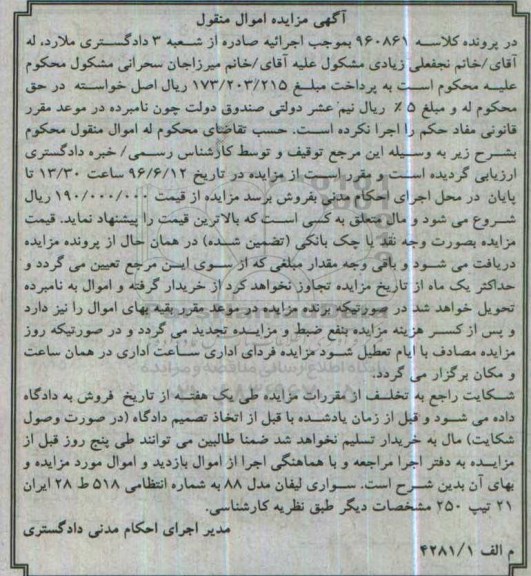 آگهی مزایده اموال منقول
در پرونده کلاسه ۹۶۰۸۶۱ بموجب اجرائیه صادره از شعبه ۳ دادگستری ملارد، له
آقای/خانم نجفعلی زیادی مشکول علیه آقای/خانم میرزاجان سحرانی مشکول محکوم
علیه محکوم است به پرداخت مبلغ ۱۷۳/۲۰۳/۲۱۵ ریال اصل خواسته در حق
محکوم له و مبلغ ۵ ٪ ریال نیم عشر دولتی صندوق دولت چون نامبرده در موعد مقرر
قانونی مفاد حکم را اجرا نکرده است. حسب تقاضای محکوم له اموال منقول محکوم
بشرح زیر به وسیله این مرجع توقیف و توسط کارشناس رسمی/ خبره دادگستری
ارزیابی گردیده است و مقرر است از مزایده در تاریخ ۹۶/۶/۱۲ ساعت ۱۳/۳۰ تا
پایان در محل اجرای احکام مدنی بفروش برسد مزایده از قیمت ۱۹۰/۰۰۰/۰۰۰ ریال
شروع می شود و مال متعلق به کسی است که بالاترین قیمت را پیشنهاد نماید. قیمت
مزایده بصورت وجه نقد یا چک بانکی (تضمین شده) در همان حال از پرونده مزایده
دریافت می شود و باقی وجه مقدار مبلغی که از سوی این مرجع تعیین می گردد و
حداکثر یک ماه از تاریخ مزایده تجاوز نخواهد کرد از خریدار گرفته و اموال به نامبرده
تحویل خواهد شد در صورتیکه برنده مزایده در موعد مقرر بقیه بهای اموال را نیز دارد
و پس از کسر هزینه مزایده بنفع ضبط و مزایده تجدید می گردد و در صورتیکه روز
مزایده مصادف با ایام تعطیل شود مزایده فردای اداری ساعت اداری در همان ساعت
و مکان برگزار می گردد.
شکایت راجع به تخلف از مقررات مزایده طی یک هفته از تاریخ فروش به دادگاه
داده می شود و قبل از زمان یادشده با قبل از اتخاذ تصمیم دادگاه (در صورت وصول
شکایت) مال به خریدار تسلیم نخواهد شد ضمنا طالبین می توانند طی پنج روز قبل از
مزایده به دفتر اجرا مراجعه و با هماهنگی اجرا از اموال بازدید و اموال مورد مزایده و
بهای آن بدین شرح است. سواری لیفان مدل ۸۸ به شماره انتظامی ۵۱۸ ط ۲۸ ایران
۲۱ تیپ ۲۵۰ مشخصات دیگر طبق نظریه کارشناسی.
مدیر اجرای احکام مدنی دادگستری
م الف ۴۲۸۱/۱